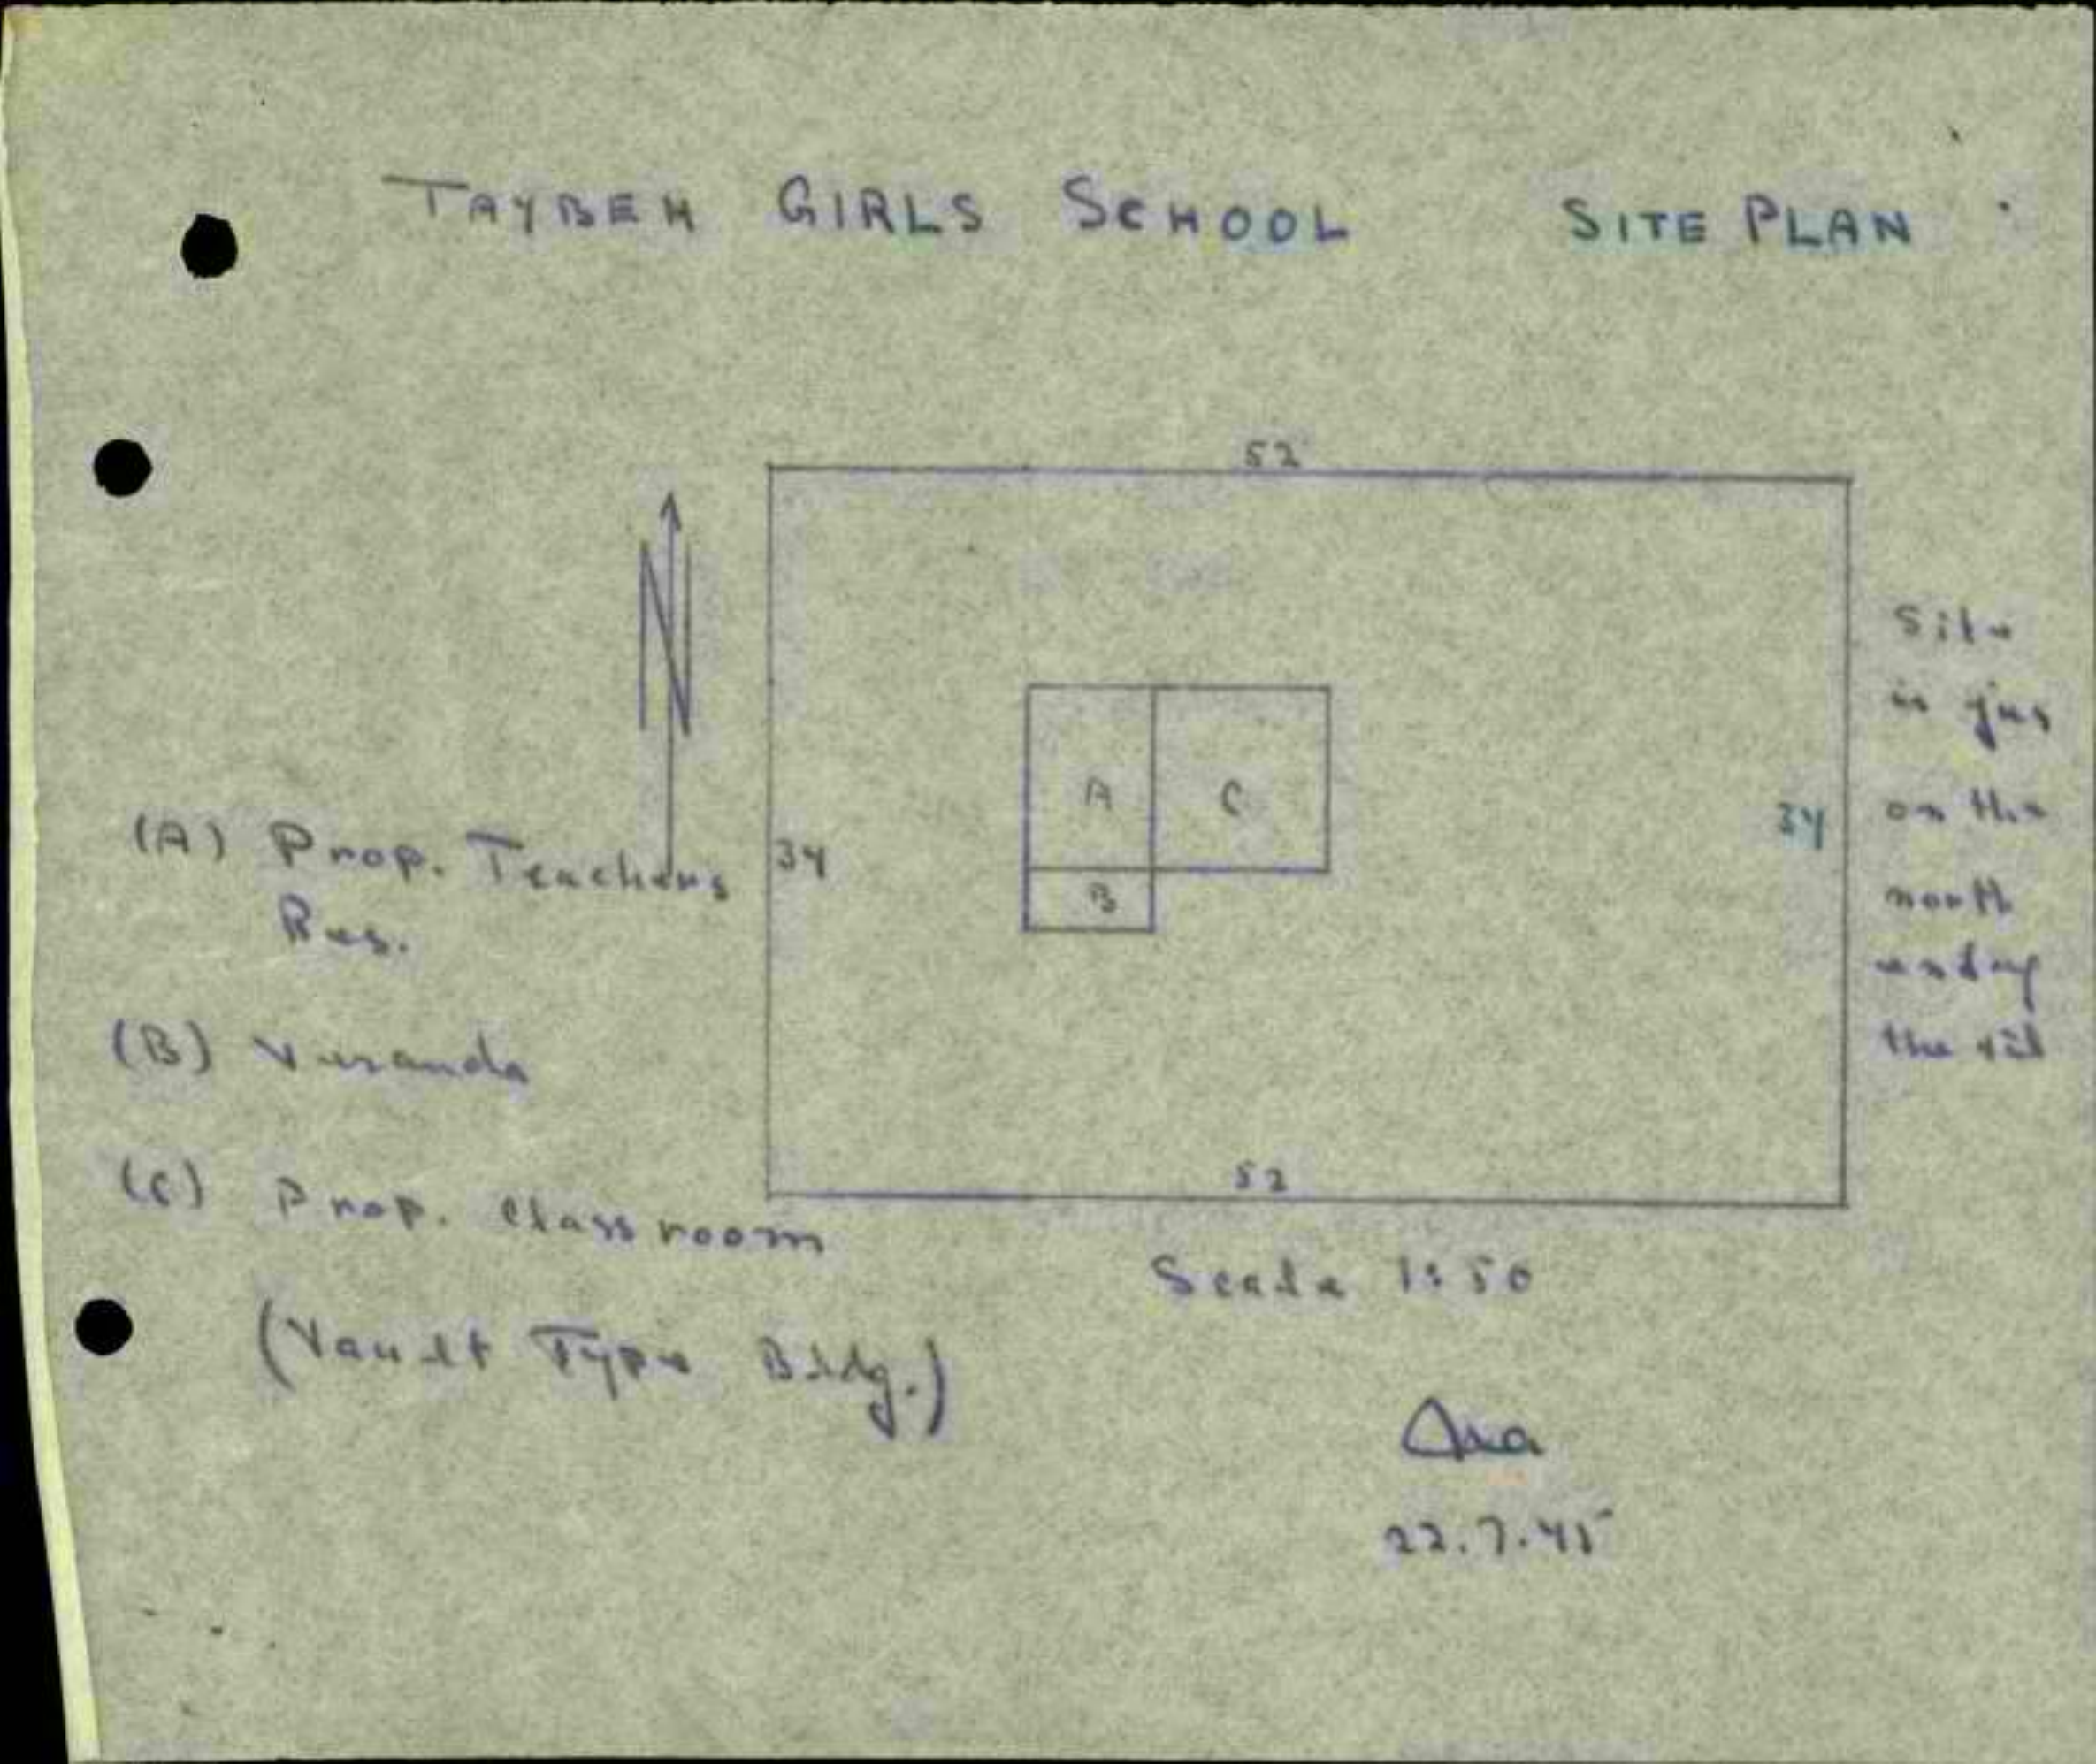 TAYBEH GIRLS SCHOOL SITE PLAN
52
N
(A) Prop. Teachers
Res.
(B) Veranda
(C) Prop. Classroom
(Vault Type Bldg.)
34
A
C
B
34
52
Site
is jus
on the
north
the vil
Scale 1:50
22.7.45